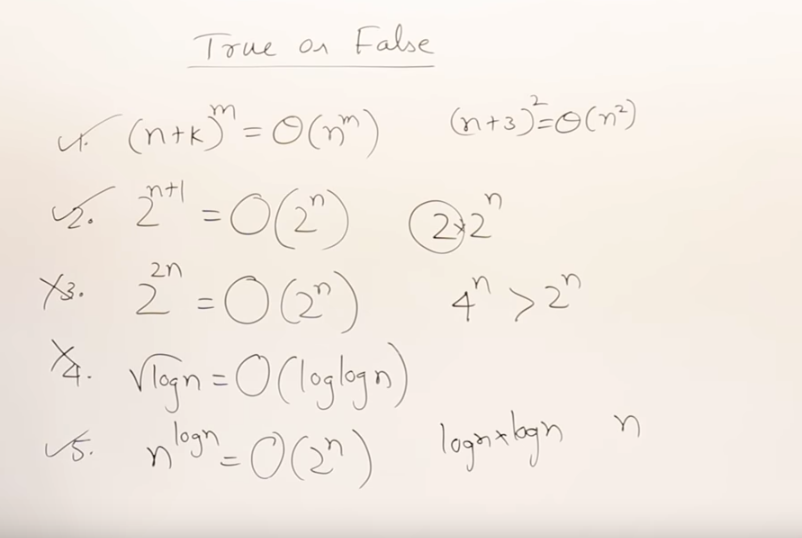 True or False
✓1. (n+k)^m = Θ(n^m) (n+3)^2 = Θ(n^2)
✓2. 2^{n+1} = O(2^n) 2×2^n
×3. 2^{2n} = O(2^n) 4^n > 2^n
×4. √logn = O(loglogn)
✓5. n^{logn} = O(2^n) logn×logn n